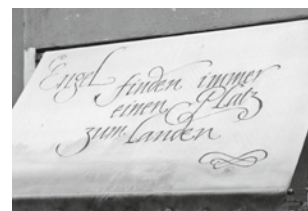 Engel finden immer
einen Platz
zum Landen